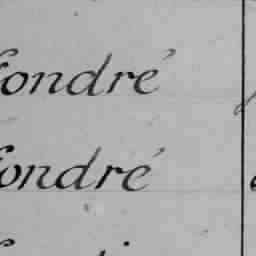 fondré
fondré